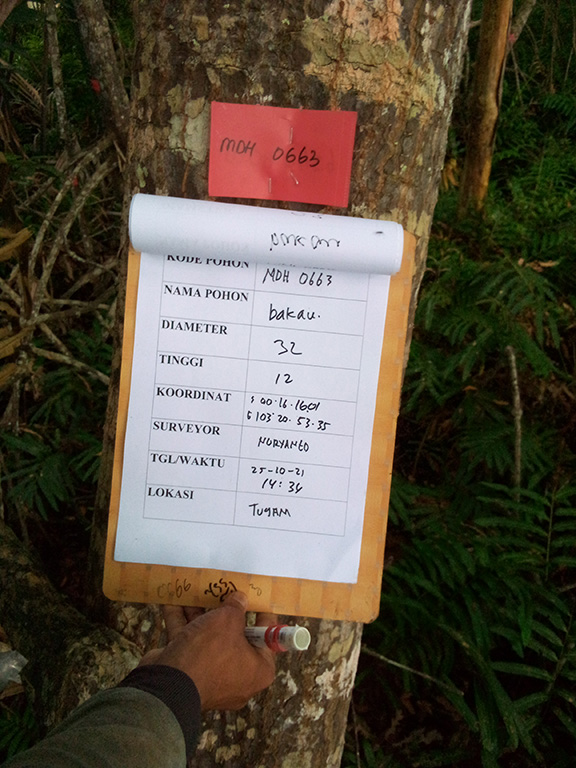 MDH 0663
KODE POHON MDH 0663
NAMA POHON bakau.
DIAMETER 32
TINGGI 12
KOORDINAT S 00.16.1601
E 103°20.53.35
SURVEYOR NURYANTO
TGL/WAKTU 25-10-21
14:34
LOKASI TUGAM